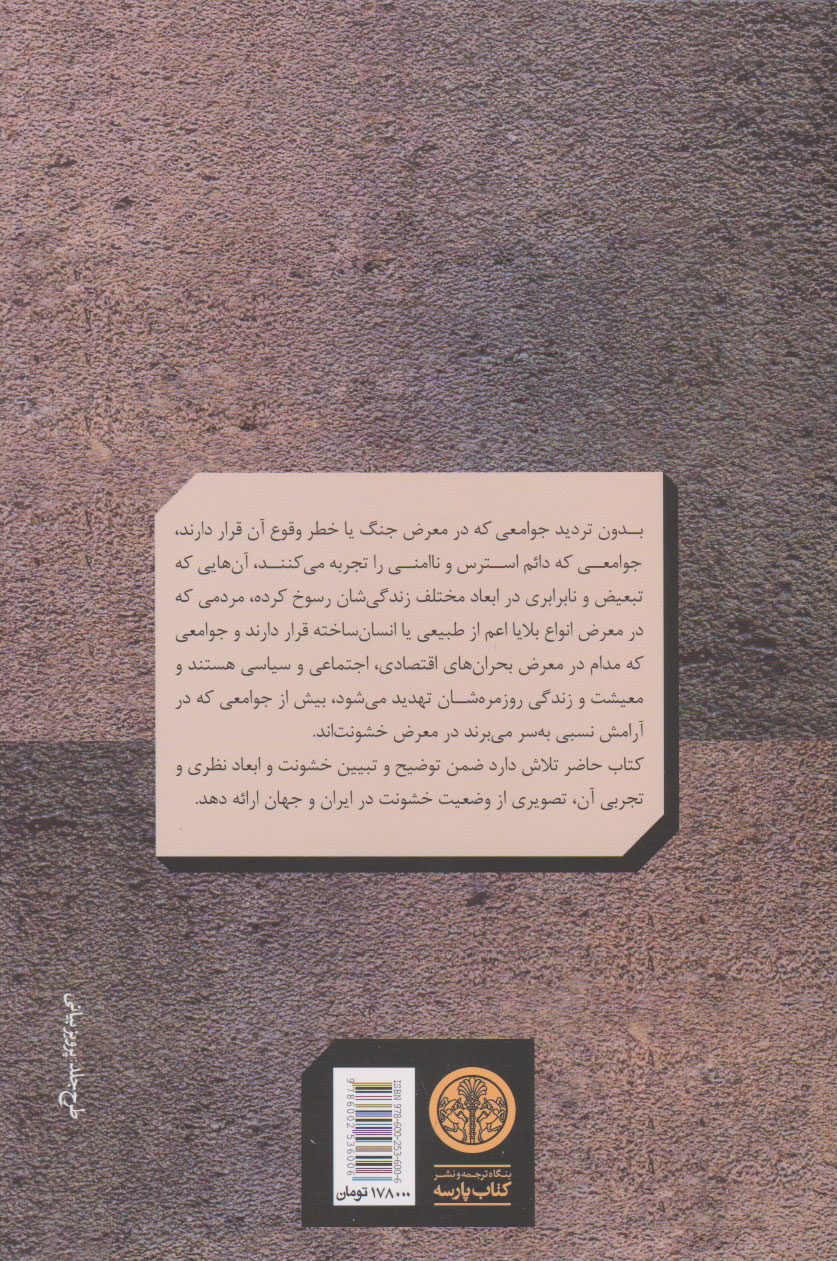 بدون تردید جوامعی که در معرض جنگ یا خطر وقوع آن قرار دارند،
جوامعی که دائم استرس و ناامنی را تجربه می‌کنند، آن‌هایی که
تبعیض و نابرابری در ابعاد مختلف زندگی‌شان رسوخ کرده، مردمی که
در معرض انواع بلایا اعم از طبیعی یا انسان‌ساخته قرار دارند و جوامعی
که مدام در معرض بحران‌های اقتصادی، اجتماعی و سیاسی هستند و
معیشت و زندگی روزمره‌شان تهدید می‌شود، بیش از جوامعی که در
آرامش نسبی به‌سر می‌برند در معرض خشونت‌اند.
کتاب حاضر تلاش دارد ضمن توضیح و تبیین خشونت و ابعاد نظری و
تجربی آن، تصویری از وضعیت خشونت در ایران و جهان ارائه دهد.
طرح جلد: پرویز بیانی
ISBN 978-600-253-600-6
9786002536006
۱۷۸۰۰۰ تومان
بنگاه ترجمه و نشر
کتاب پارسه